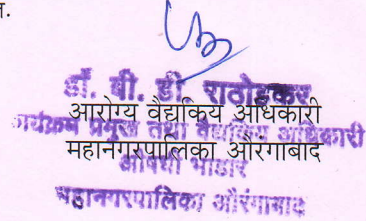 न.
डॉ. बी. डी. राठोडकर
आरोग्य वैद्यकिय अधिकारी
कार्यक्रम प्रमुख तथा वैद्यकिय अधिकारी
महानगरपालिका औरंगाबाद
औषधी भांडार
महानगरपालिका औरंगाबाद